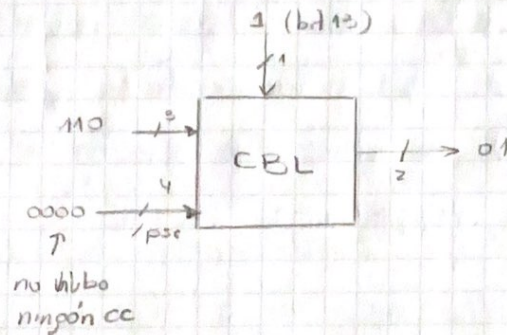 1 (bit 13)
1
110
3
CBL
01
2
4
0000
/psr
↑
no hubo
ningún CC